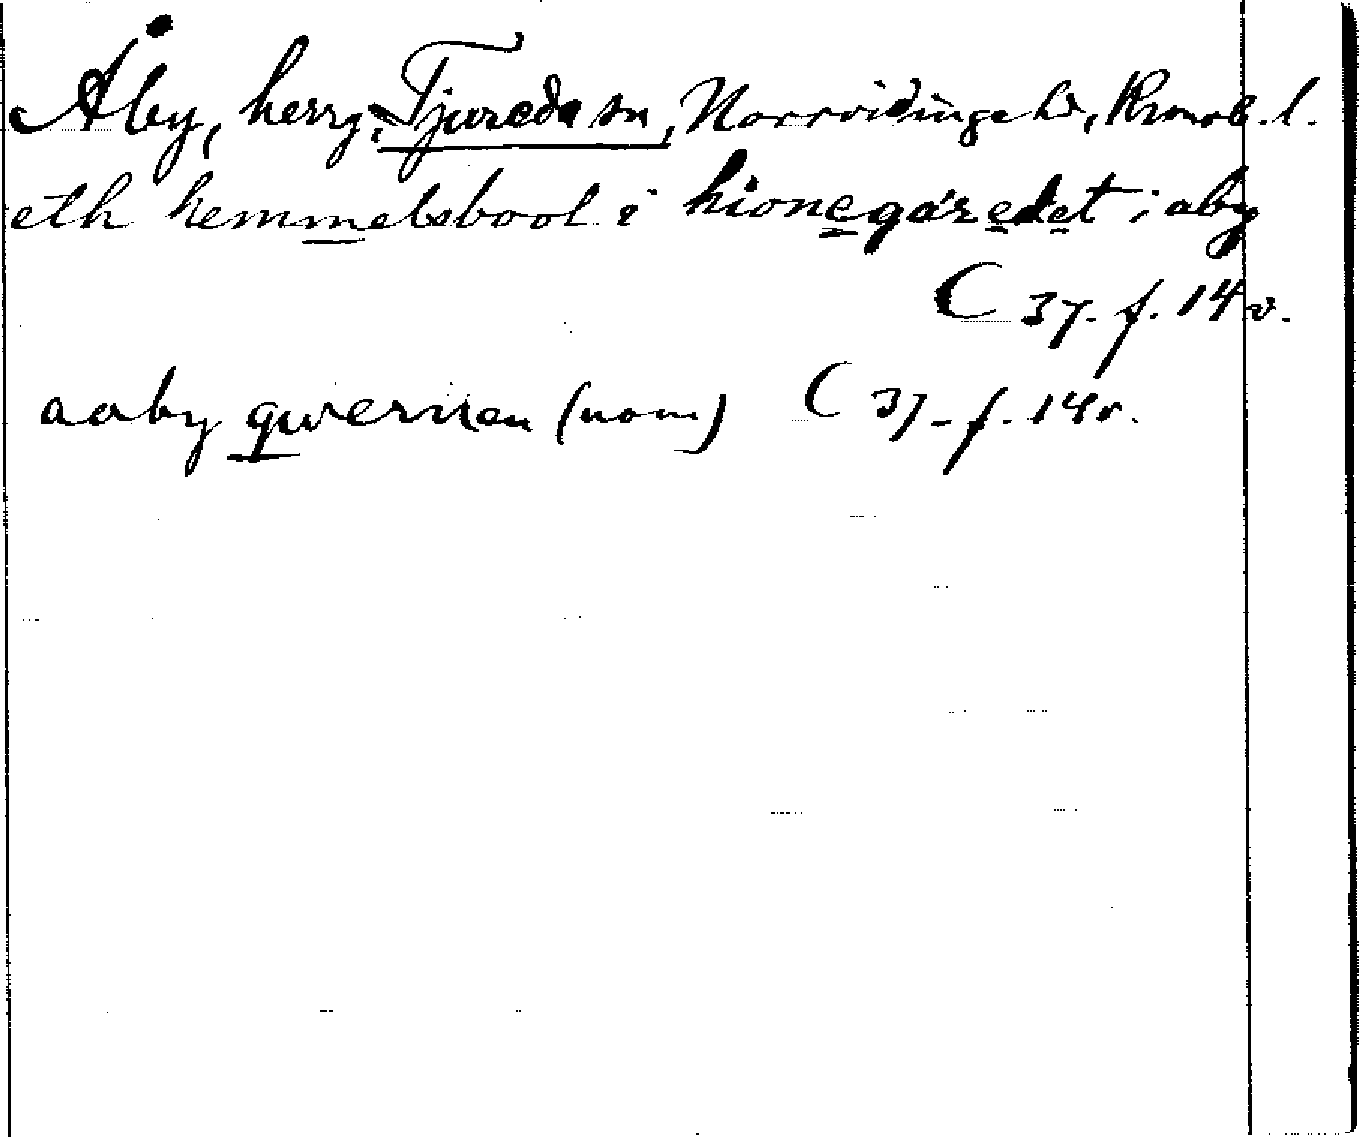 Åby, herrg. Tjureda sn, Norrvidinge hd, Kronob. l.
eth hemmelsbool i hionegäredet i aby
C 37. f. 14 v.
aaby qwernen (nom) C 37. f. 14 v.